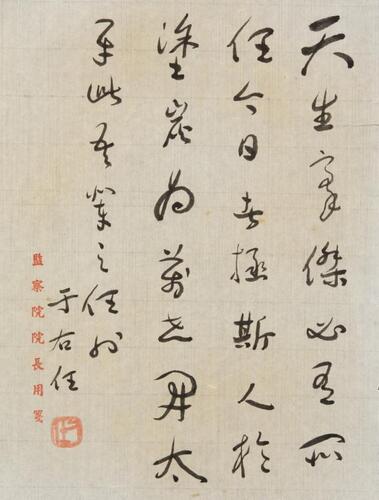 天生豪傑必有所
任今日者拯斯人於
塗炭為萬世開太
平此吾輩之任也
于右任
監察院院長用箋